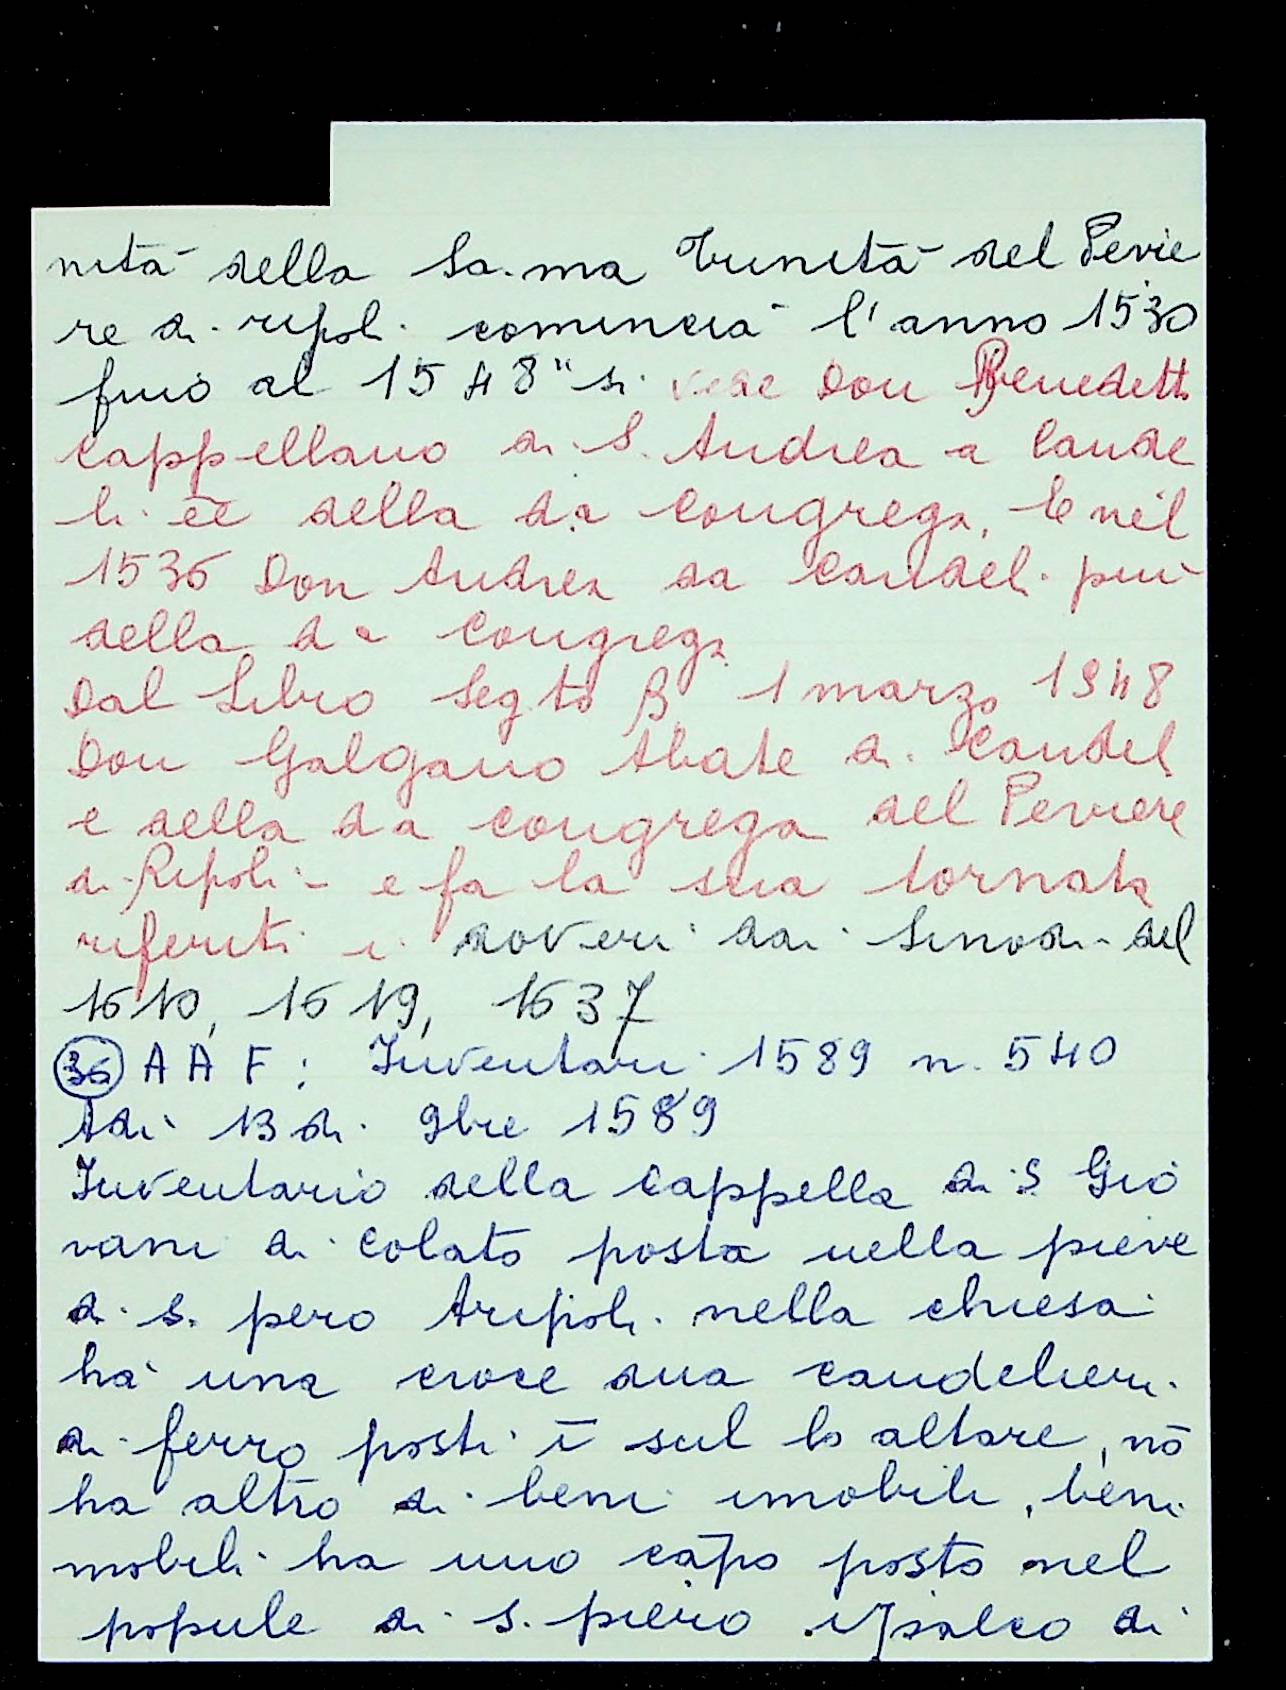 nità della Sa.ma Trinità del Pevie
re di ripoli comincia l'anno 1530
fino al 1548" si vede Don Benedett
cappellano di S. Andrea a Cande
li et della da Congrega, e nel
1536 Don Andrea da Candeli pur
della da Congrega
Dal Libro Segto B 1 marzo 1548
Don Galgano Abate di Candel
e della da congrega del Peviere
di Ripoli - e fa la sua tornata
riferiti i doveri dai Sinodi del
1610, 1619, 1637
36 A A F: Inventari 1589 n. 540
Adi 13 di 9bre 1589
Inventario della cappella di S Gio
vani di Colato posta nella pieve
di s. pero Aripoli. nella chiesa
hà una croce dua candelieri
di ferro posti ī sul lo altare, nō
ha altro di beni imobili, beni
mobili ha uno cāpo posto nel
popule di s. piero di